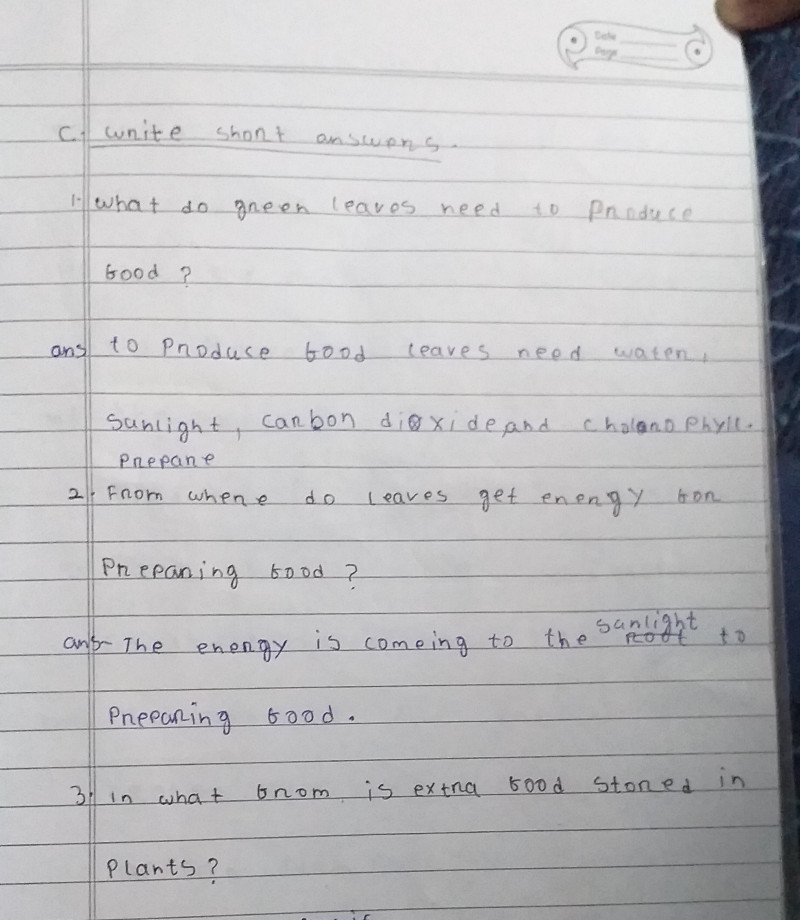 Date
Page
C. Write short answers.
1. What do green leaves need to Produce
food ?
ans to Produce food leaves need water,
Sunlight, carbon dioxide and cholorophyll.
Prepare
2. From where do leaves get energy for
Preparing food ?
ans- The energy is comeing to the sunlight root to
Preparing food.
3. in what from is extra food stored in
Plants ?